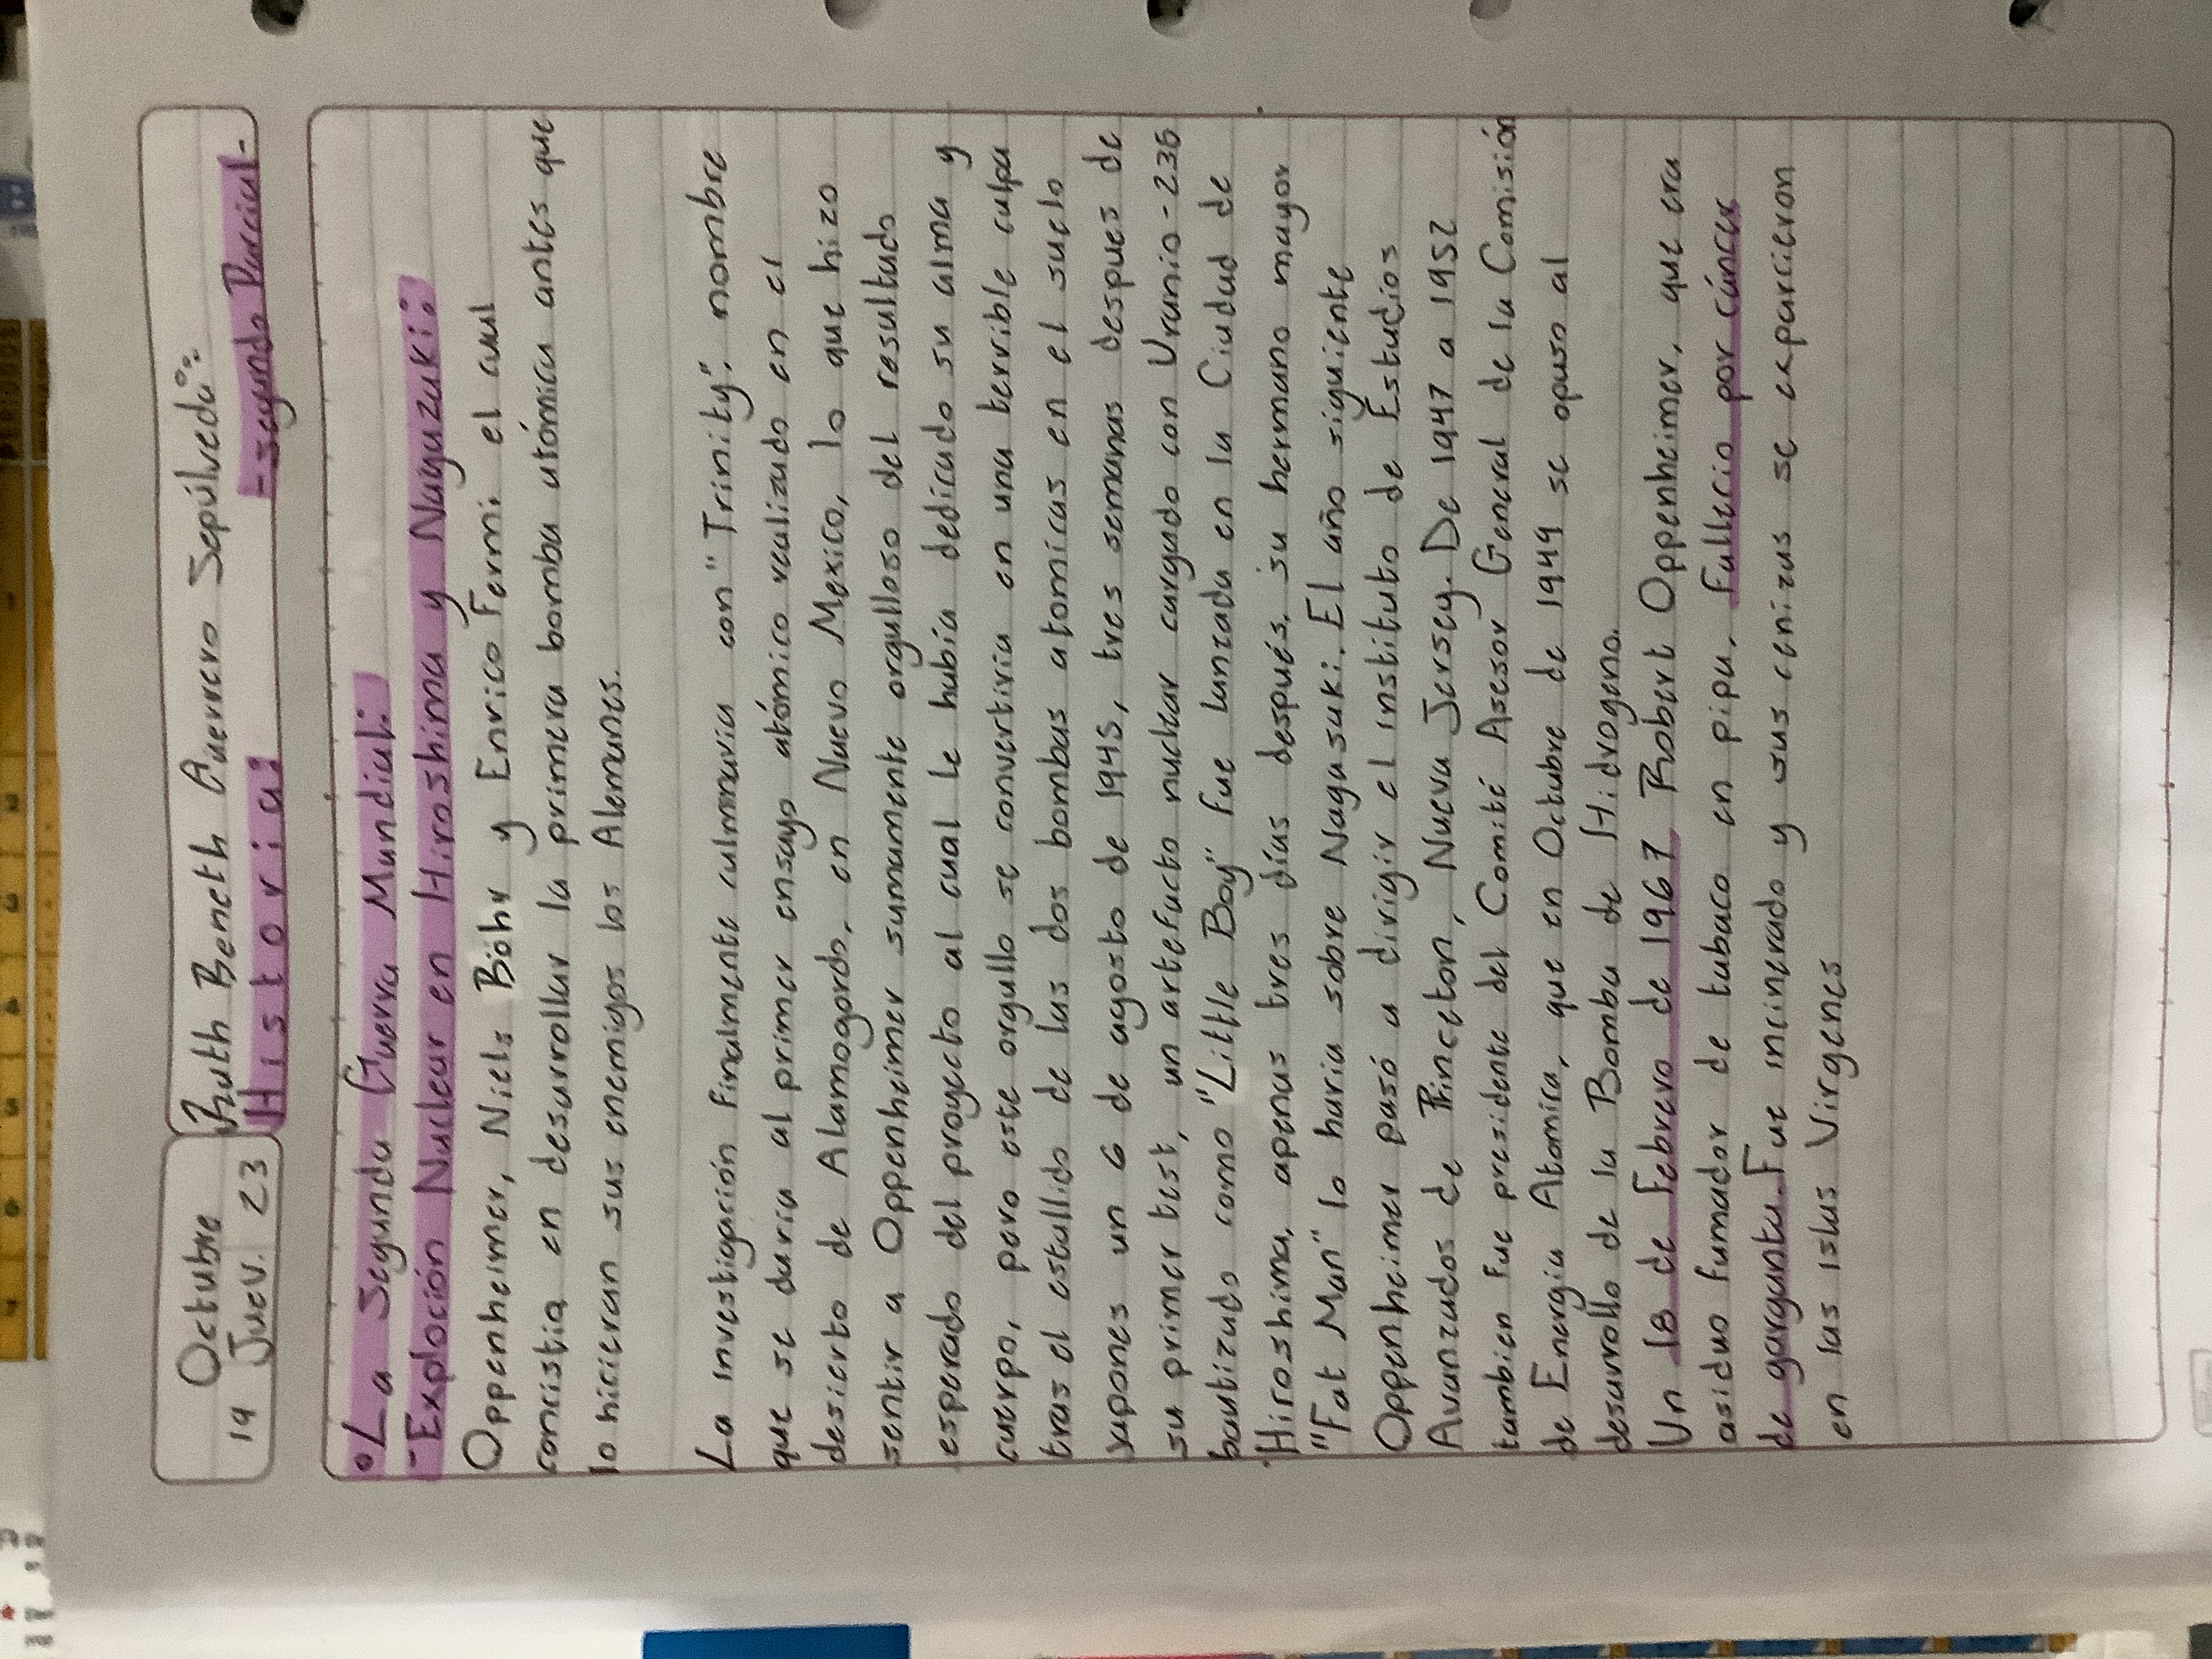 Octubre
19 Juev. 23
Ruth Beneth Guerrero Sepúlveda
Historia:
-Segundo Parcial-
°La Segunda Guerra Mundial:
-Exploción Nuclear en Hiroshima y Nagazaki:
Oppenheimer, Niels Böhr y Enrico Fermi el cual
concistia en desarrollar la primera bomba atómica antes que
lo hicieran sus enemigos los Alemanes.
La investigación finalmente culminaria con "Trinity", nombre
que se daria al primer ensayo atómico realizado en el
desierto de Alamogordo, en Nuevo Mexico, lo que hizo
sentir a Oppenheimer sumamente orgulloso del resultado
esperado del proyecto al cual le habia dedicado su alma y
cuerpo, pero este orgullo se convertiria en una terrible culpa
tras el estallido de las dos bombas atomicas en el suelo
japones un 6 de agosto de 1945, tres semanas despues de
su primer test, un artefacto nuclear cargado con Uranio-235
bautizado como "Little Boy" fue lanzada en la Ciudad de
Hiroshima, apenas tres días después, su hermano mayor
"Fat Man" lo haria sobre Nagasuki. El año siguiente
Oppenheimer pasó a dirigir el instituto de Estudios
Avanzados de Princeton, Nueva Jersey. De 1947 a 1952
tambien fue presidente del Comité Asesor General de la Comisión
de Energia Atomica, que en Octubre de 1949 se opuso al
desarrollo de la Bomba de Hidrogeno.
Un 18 de Febrero de 1967 Robert Oppenheimer, que era
asiduo fumador de tabaco en pipa, fallecio por cáncer
de garganta. Fue incinerado y sus cenizas se esparcieron
en las islas Virgenes